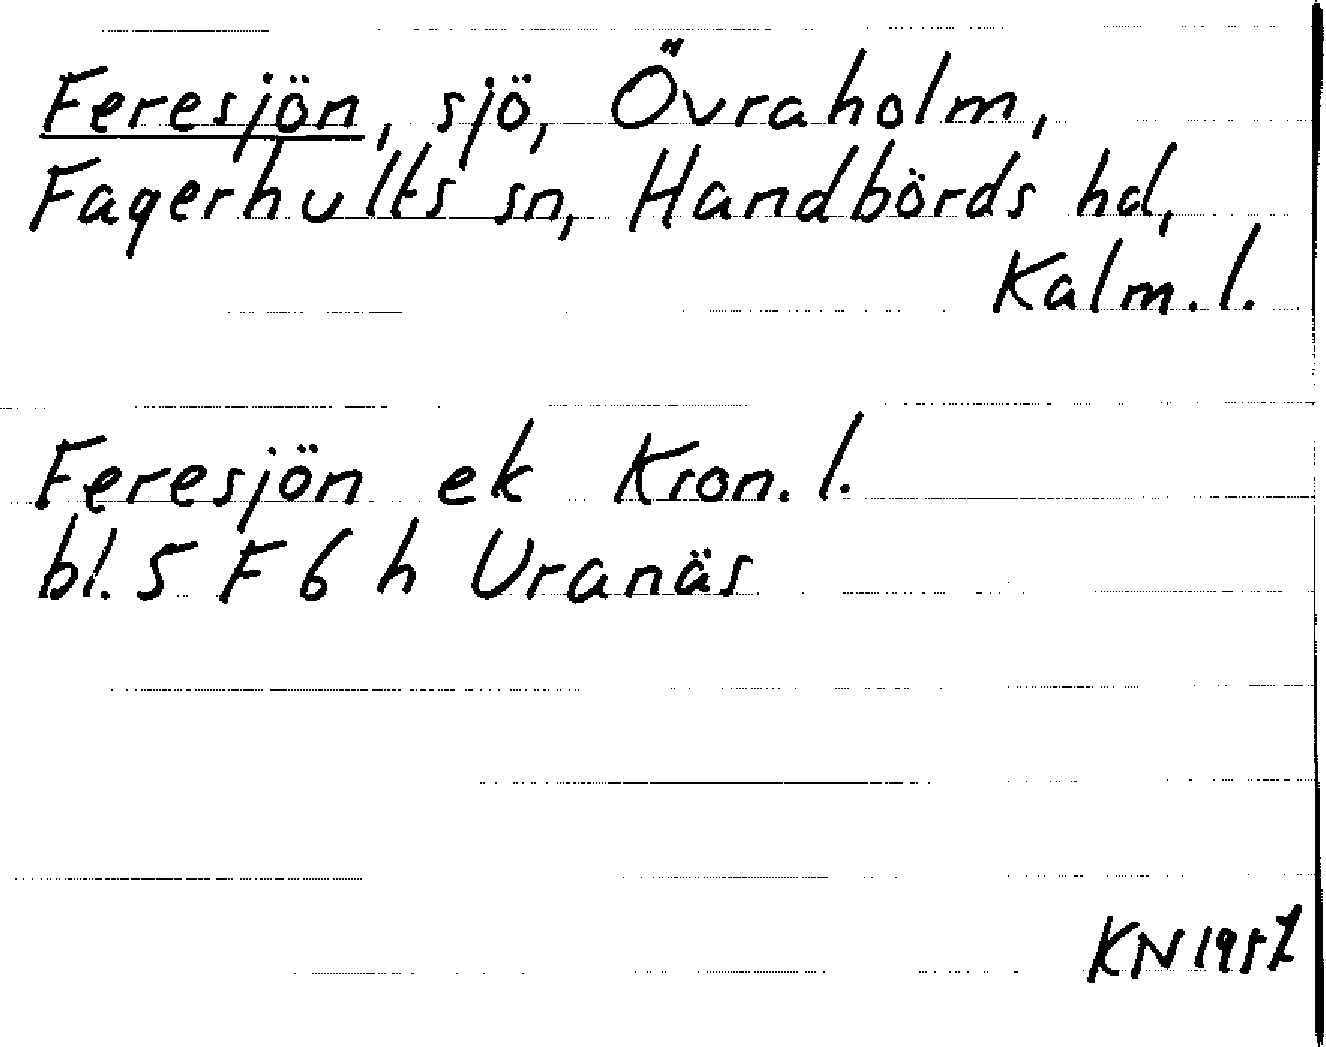 Feresjön, sjö, Övraholm,
Fagerhults sn, Handbörds hd,
Kalm. l.
Feresjön ek Kron. l.
bl. 5 F 6 h Uranäs
KN 1957